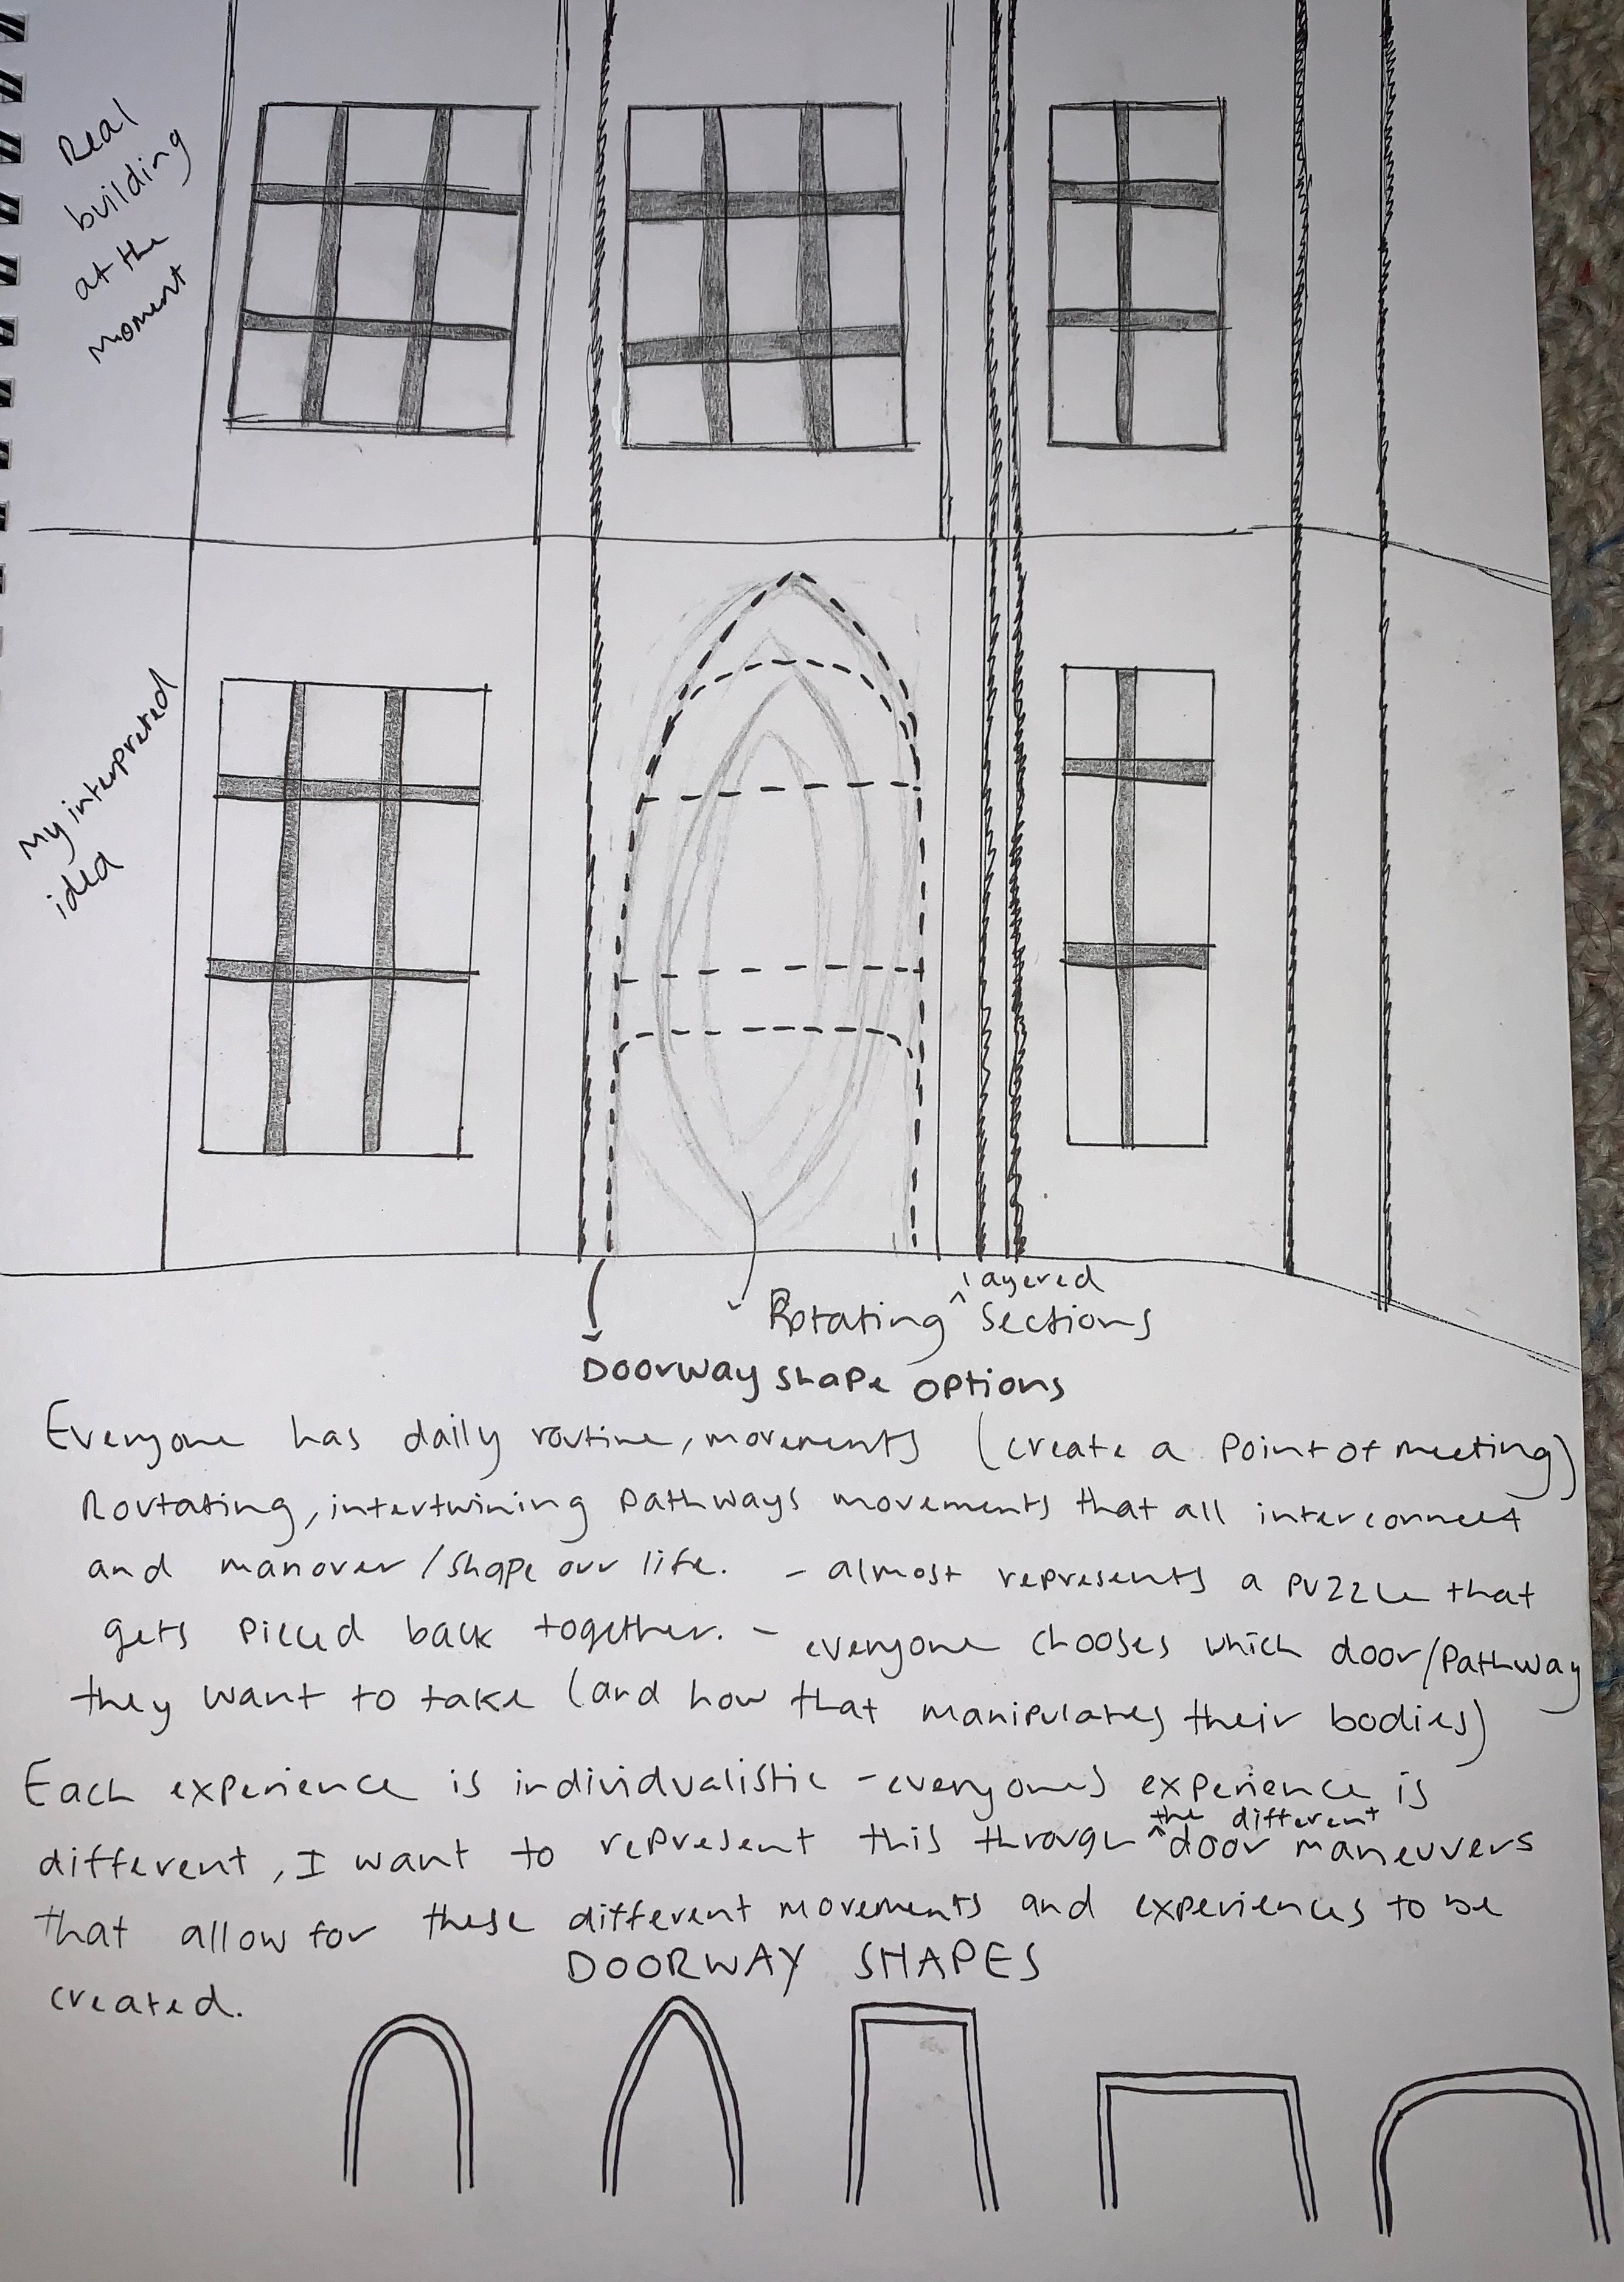 Real
building
at the
moment
My interpreted
idea
layered
Rotating ^ Sections
Doorway shape options
Everyone has daily routine, movements (create a point of meeting)
Rovtating, intertwining pathways movements that all interconnect
and manover/shape our life. - almost represents a puzzle that
gets pieced back together. - everyone chooses which door/pathway
they want to take (and how that manipulates their bodies)
Each experience is individualistic - everyones experience is
the different
different, I want to represent this through ^ door maneuvers
that allow for these different movements and experiences to be
created.
DOORWAY SHAPES